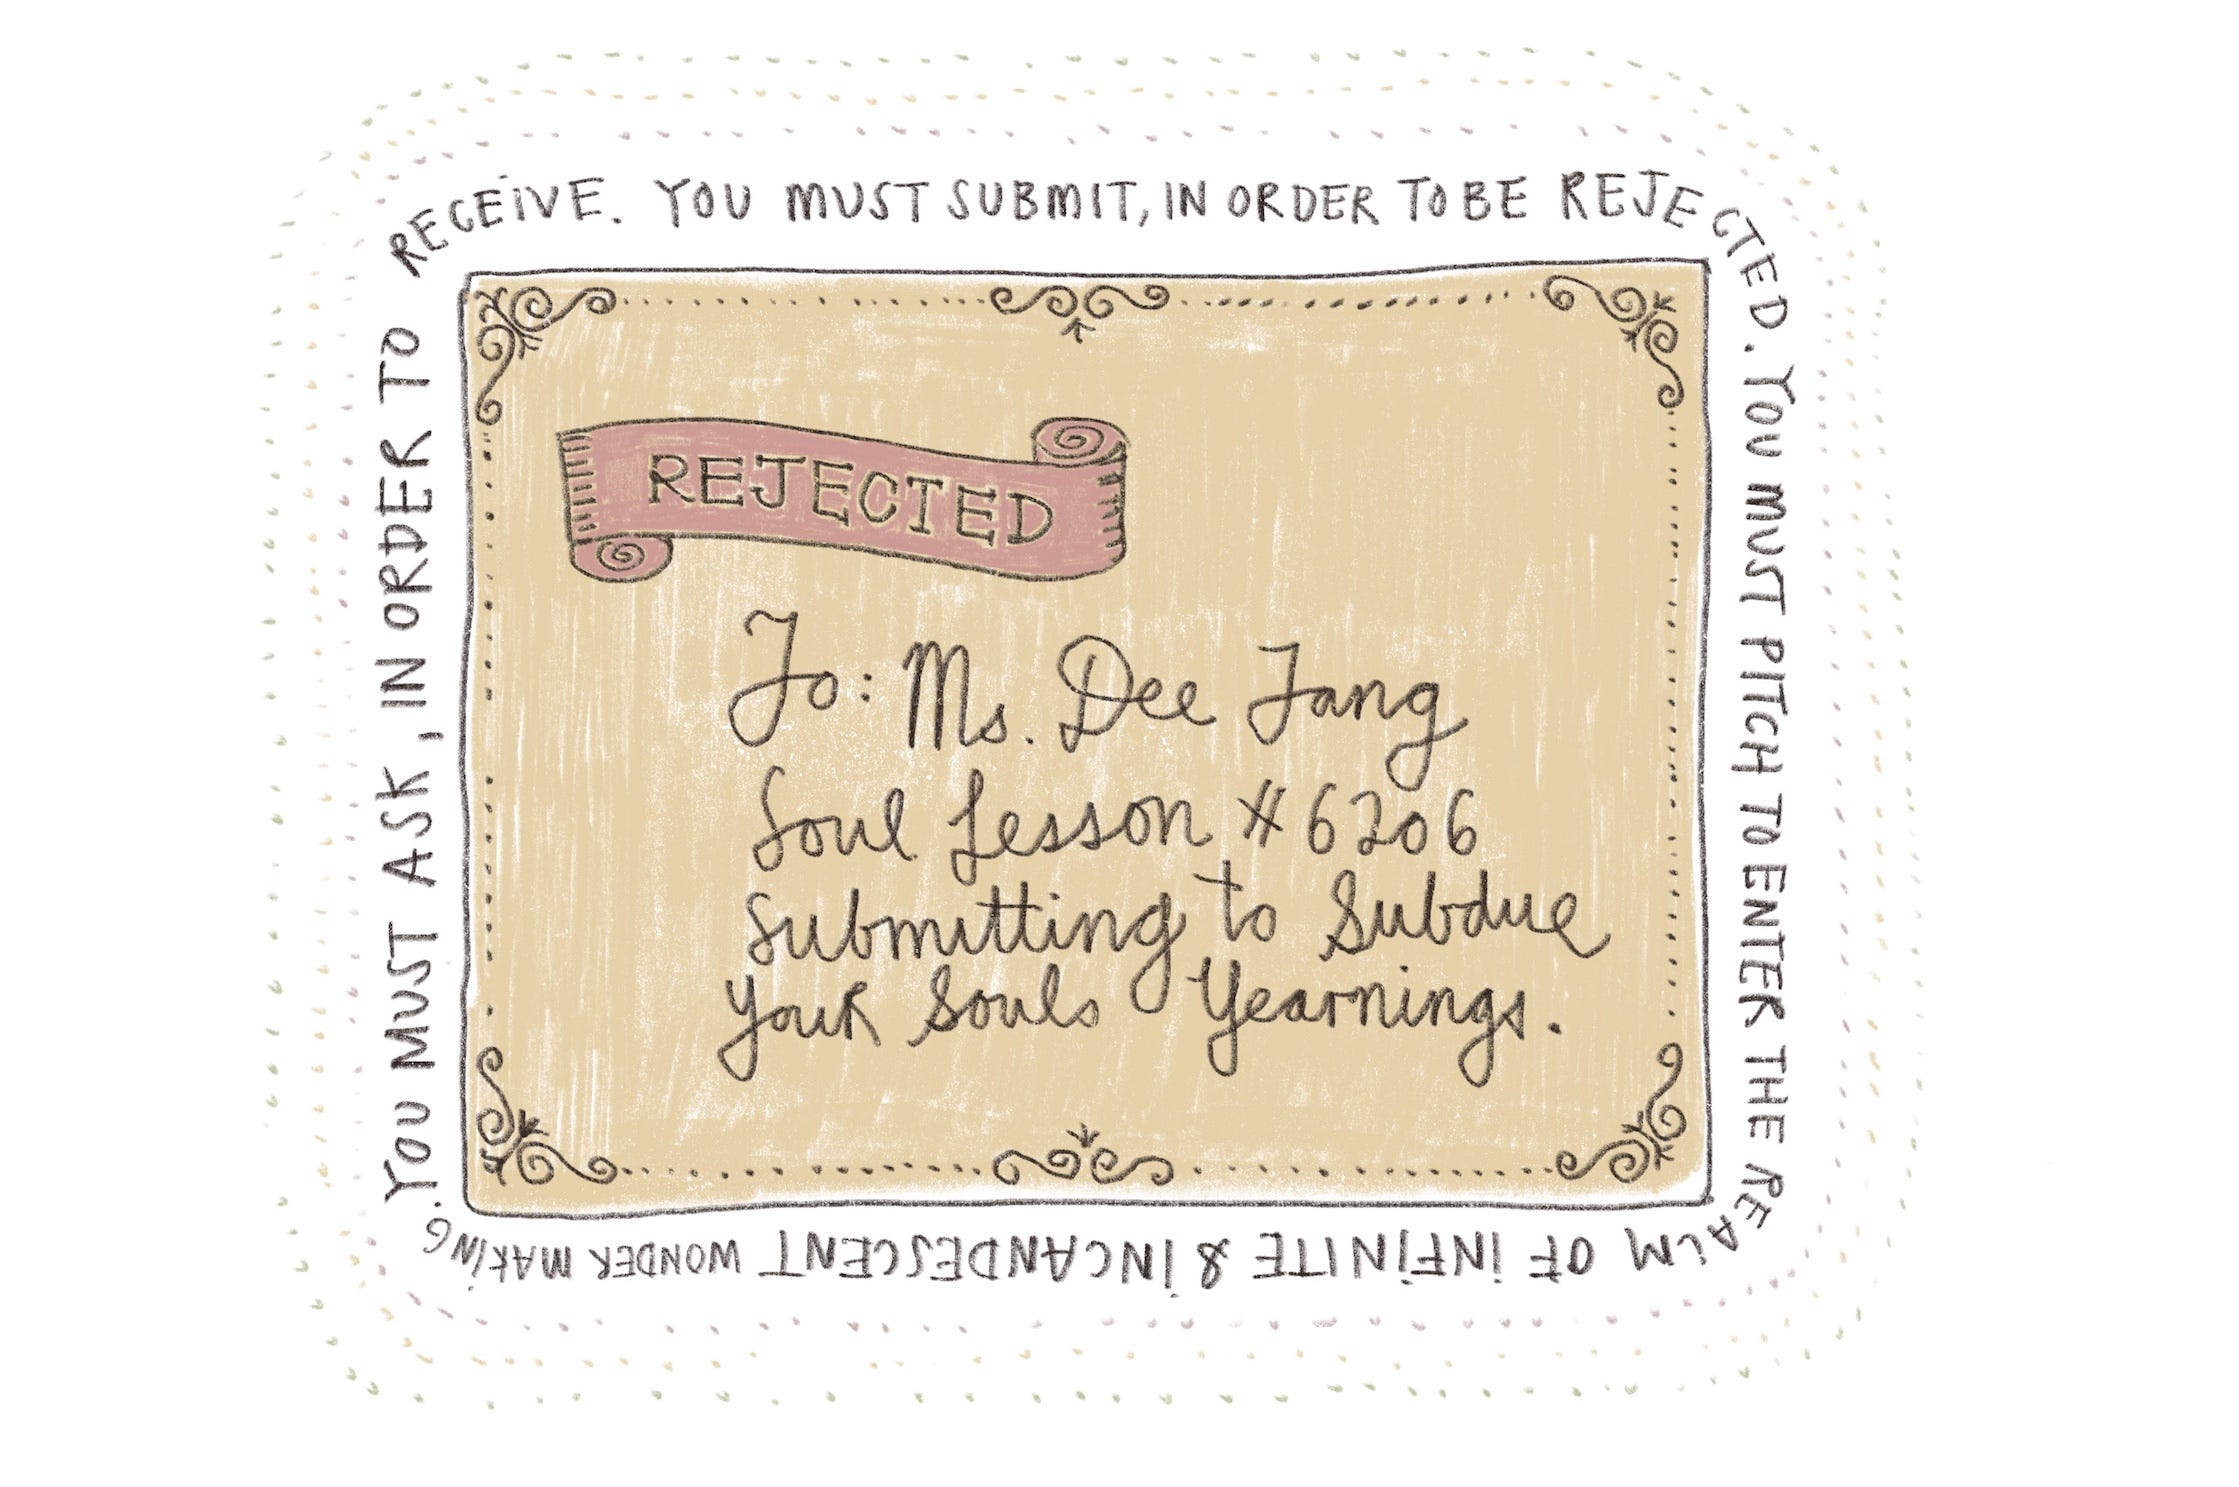 YOU MUST ASK, IN ORDER TO
RECEIVE. YOU MUST SUBMIT, IN ORDER TO BE REJECTED.
YOU MUST PITCH TO ENTER THE REALM
OF INFINITE & INCANDESCENT WONDER MAKING.
REJECTED
To: Ms. Dee Tang
Soul Lesson #6206
Submitting to Subdue
Your Souls Yearnings.